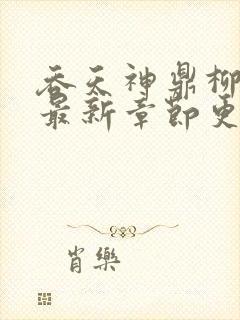 吞天神鼎柳
最新章节更
肖樂